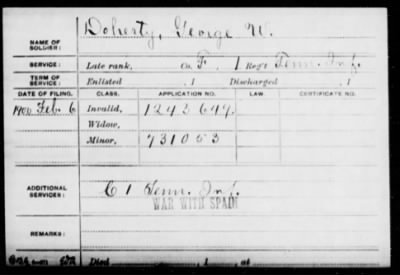 Doherty, George W.
NAME OF SOLDIER:
SERVICE: Late rank, Co. F, 1 Reg't Tenn. Inf.
TERM OF SERVICE: Enlisted , 1 Discharged , 1
DATE OF FILING. CLASS. APPLICATION NO. LAW. CERTIFICATE NO.
1900 Feb. 6 Invalid, 1243644.
Widow,
Minor, 731053
ADDITIONAL SERVICES: C 1 Tenn. Inf.
WAR WITH SPAIN
REMARKS:
Died , 1 , at